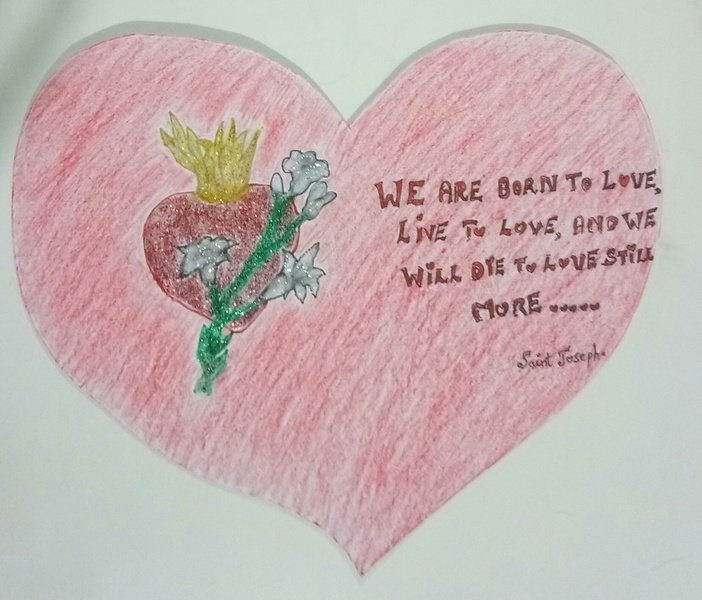 WE ARE BORN TO LOVE,
LiVE To LOVE, AND WE
WiLL DiE To LOVE STiLL
MORE .....
Saint Joseph.